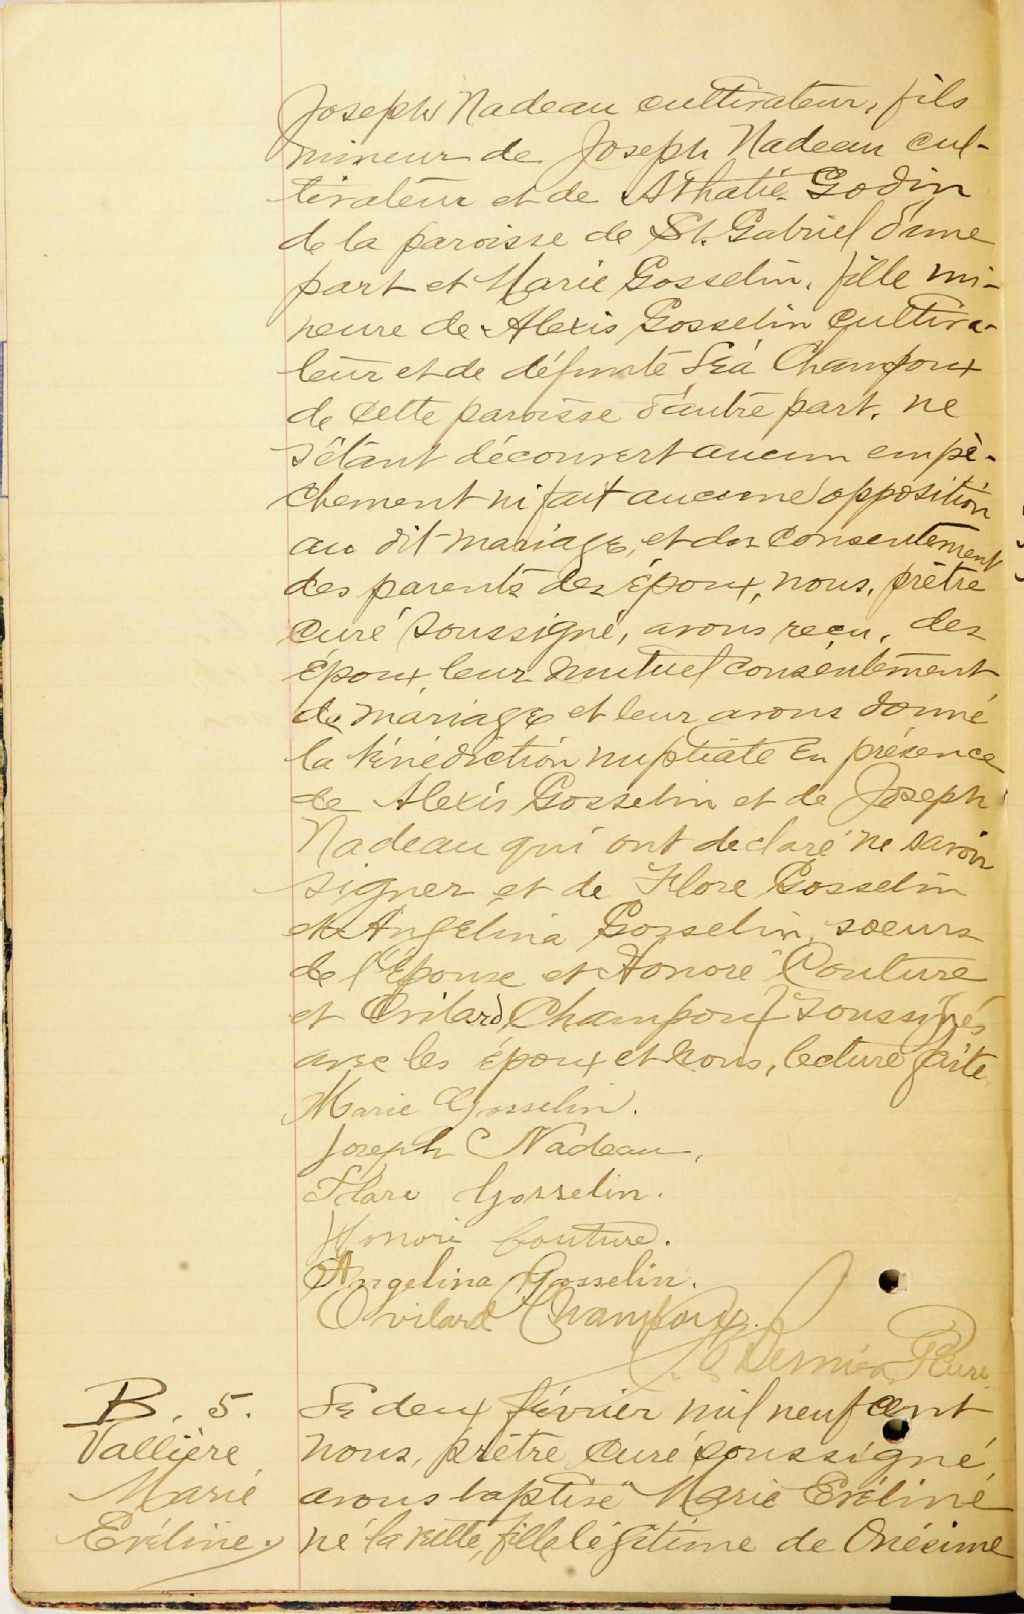 Joseph Nadeau cultivateur, fils
mineur de Joseph Nadeau cul-
tivateur et de Athalie Godin
de la paroisse de St. Gabriel d'une
part et Marie Gosselin, fille mi-
neure de Alexis Gosselin cultiva-
teur et de défunte Léa Champoux
de cette paroisse d'autre part, ne
s'étant découvert aucun empê-
chement ni fait aucune opposition
au dit mariage, et du consentement
des parents des époux, nous, prêtre
curé soussigné, avons reçu, des
époux leur mutuel consentement
de mariage et leur avons donné
la bénédiction nuptiale en présence
de Alexis Gosselin et de Joseph
Nadeau qui ont déclaré ne savoir
signer et de Flore Gosselin
et Angelina Gosselin, soeurs
de l'épouse et Honoré Couture
et Ovilard Champoux soussignés
avec les époux et nous, lecture faite
Marie Gosselin.
Joseph Nadeau,
Flore Gosselin.
Honoré Couture.
Angelina Gosselin.
Ovilard Champoux.
Ptre Curé
B. 5.
Vallière
Marie
Evéline.
Le deux février mil neuf cent
nous, prêtre curé soussigné
avons baptisé Marie Evéline
né la veille, fille légitime de Onésime